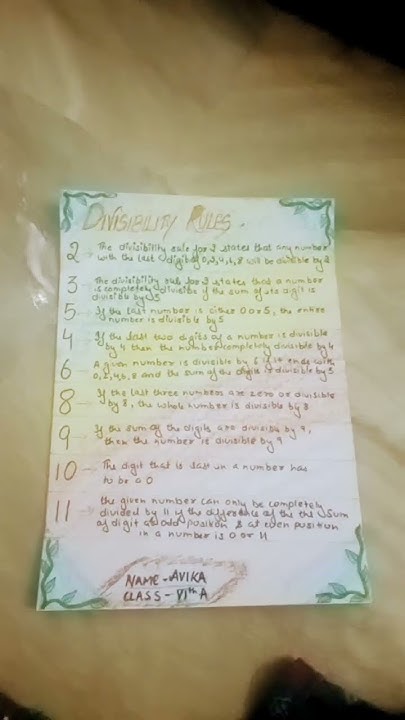 DIVISIBILITY RULES.
2 → The divisibility rule for 2 states that any number
with the last digit of 0,2,4,6,8 will be divisible by 2
3 → The divisibility rule for states that a number
is completely divisible if the sum of its digit is
divisible by 3
5 → If the last number is either 0 or 5, the entire
number is divisible by 5
4 If the last two digits of a number is divisible
by 4 then the number completely divisible by 4
6 A given number is divisible by 6 if ends with
0,2,4,6,8 and the sum of the digits is divisible by 3
8 → If the last three numbers are zero or divisible
by 8, the whole number is divisible by 8
9 → If the sum of the digits are by 9,
then the number is divisible by 9
10 → The digit that is last in a number has
to be a 0
11 → the given number can only be completely
divided by 11 if the difference of the the sum
of digit at odd position & at even position
in a number is 0 or 11
NAME - AVIKA
CLASS - VIth A